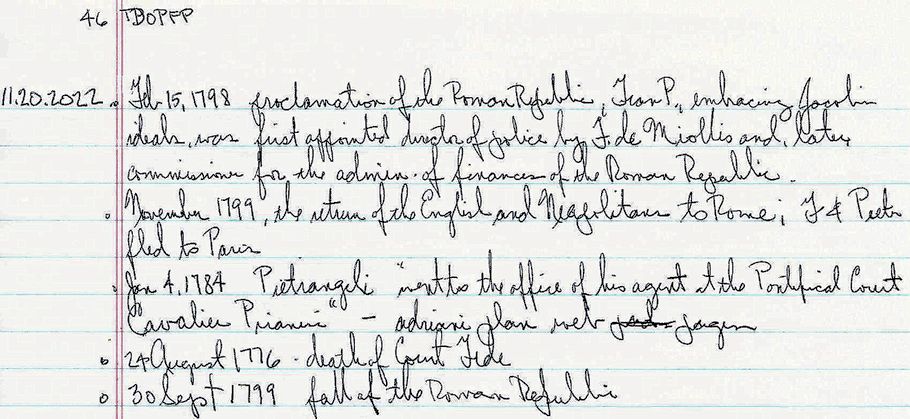 46 TBOPFP
11.20.2022. Feb 15, 1798 proclamation of the Roman Republic, Fran P., embracing Jacobin
ideals, was first appointed director of police by F. de Miollis and, later,
commissioner for the admin. of finances of the Roman Republic.
. November 1799, the return of the English and Neapolitans to Rome; F & Pietr
fled to Paris
. Jan 4, 1784 Pietrangeli "went to the office of his agent at the Pontifical Court
Cavalier Piranesi" - adriani plan web jorgen
. 24 August 1776 - death of Count Fede
. 30 Sept 1799 fall of the Roman Republic